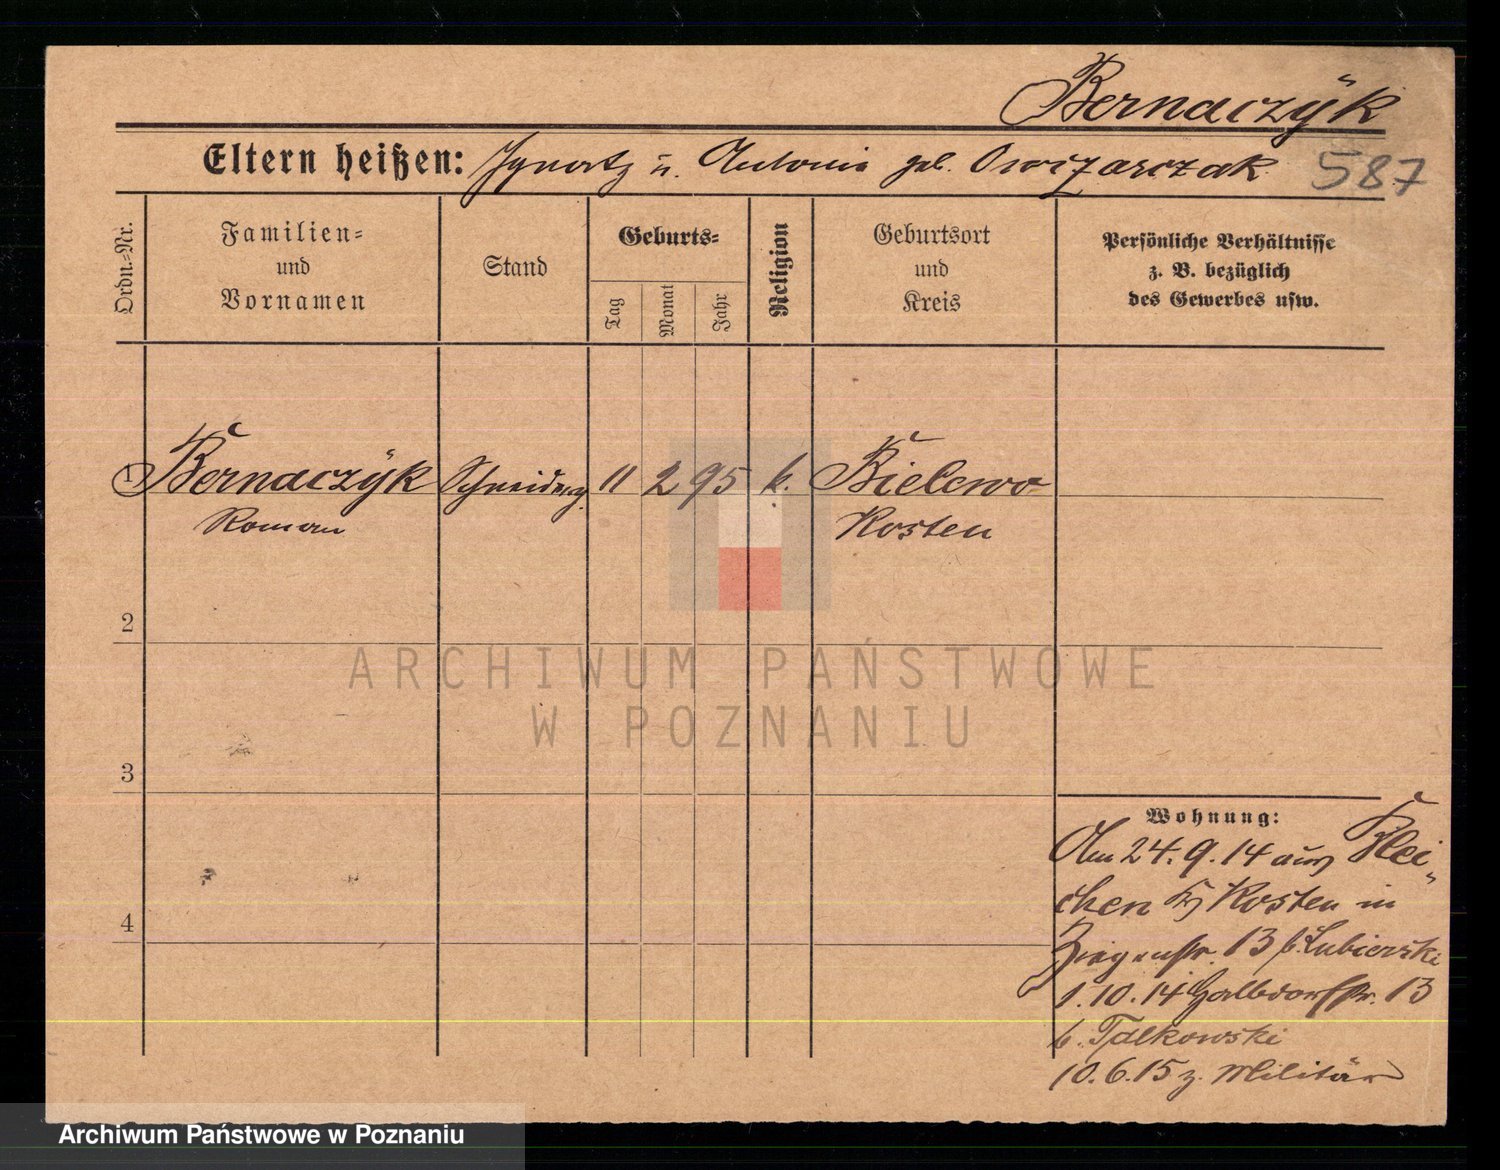 Bernaczÿk
Eltern heißen: Ignatz u. Antonie geb. Owczarczak 587
Ordn.-Nr.
Familien-
und
Vornamen
Stand
Geburts-
Tag
Monat
Jahr
Religion
Geburtsort
und
Kreis
Persönliche Verhältnisse
z. B. bezüglich
des Gewerbes usw.
1 Bernaczÿk Schneiderg. 11 2 95 k. Bielewo
Roman Kosten
2
3
4
Wohnung:
Am 24.9.14 aus
Kosten in
Ziegenstr. 13 b. Lubierski
1.10.14 Halbdorfstr. 13
b. Talkowski
10.6.15 z. Militär
ARCHIWUM PAŃSTWOWE
W POZNANIU
Archiwum Państwowe w Poznaniu